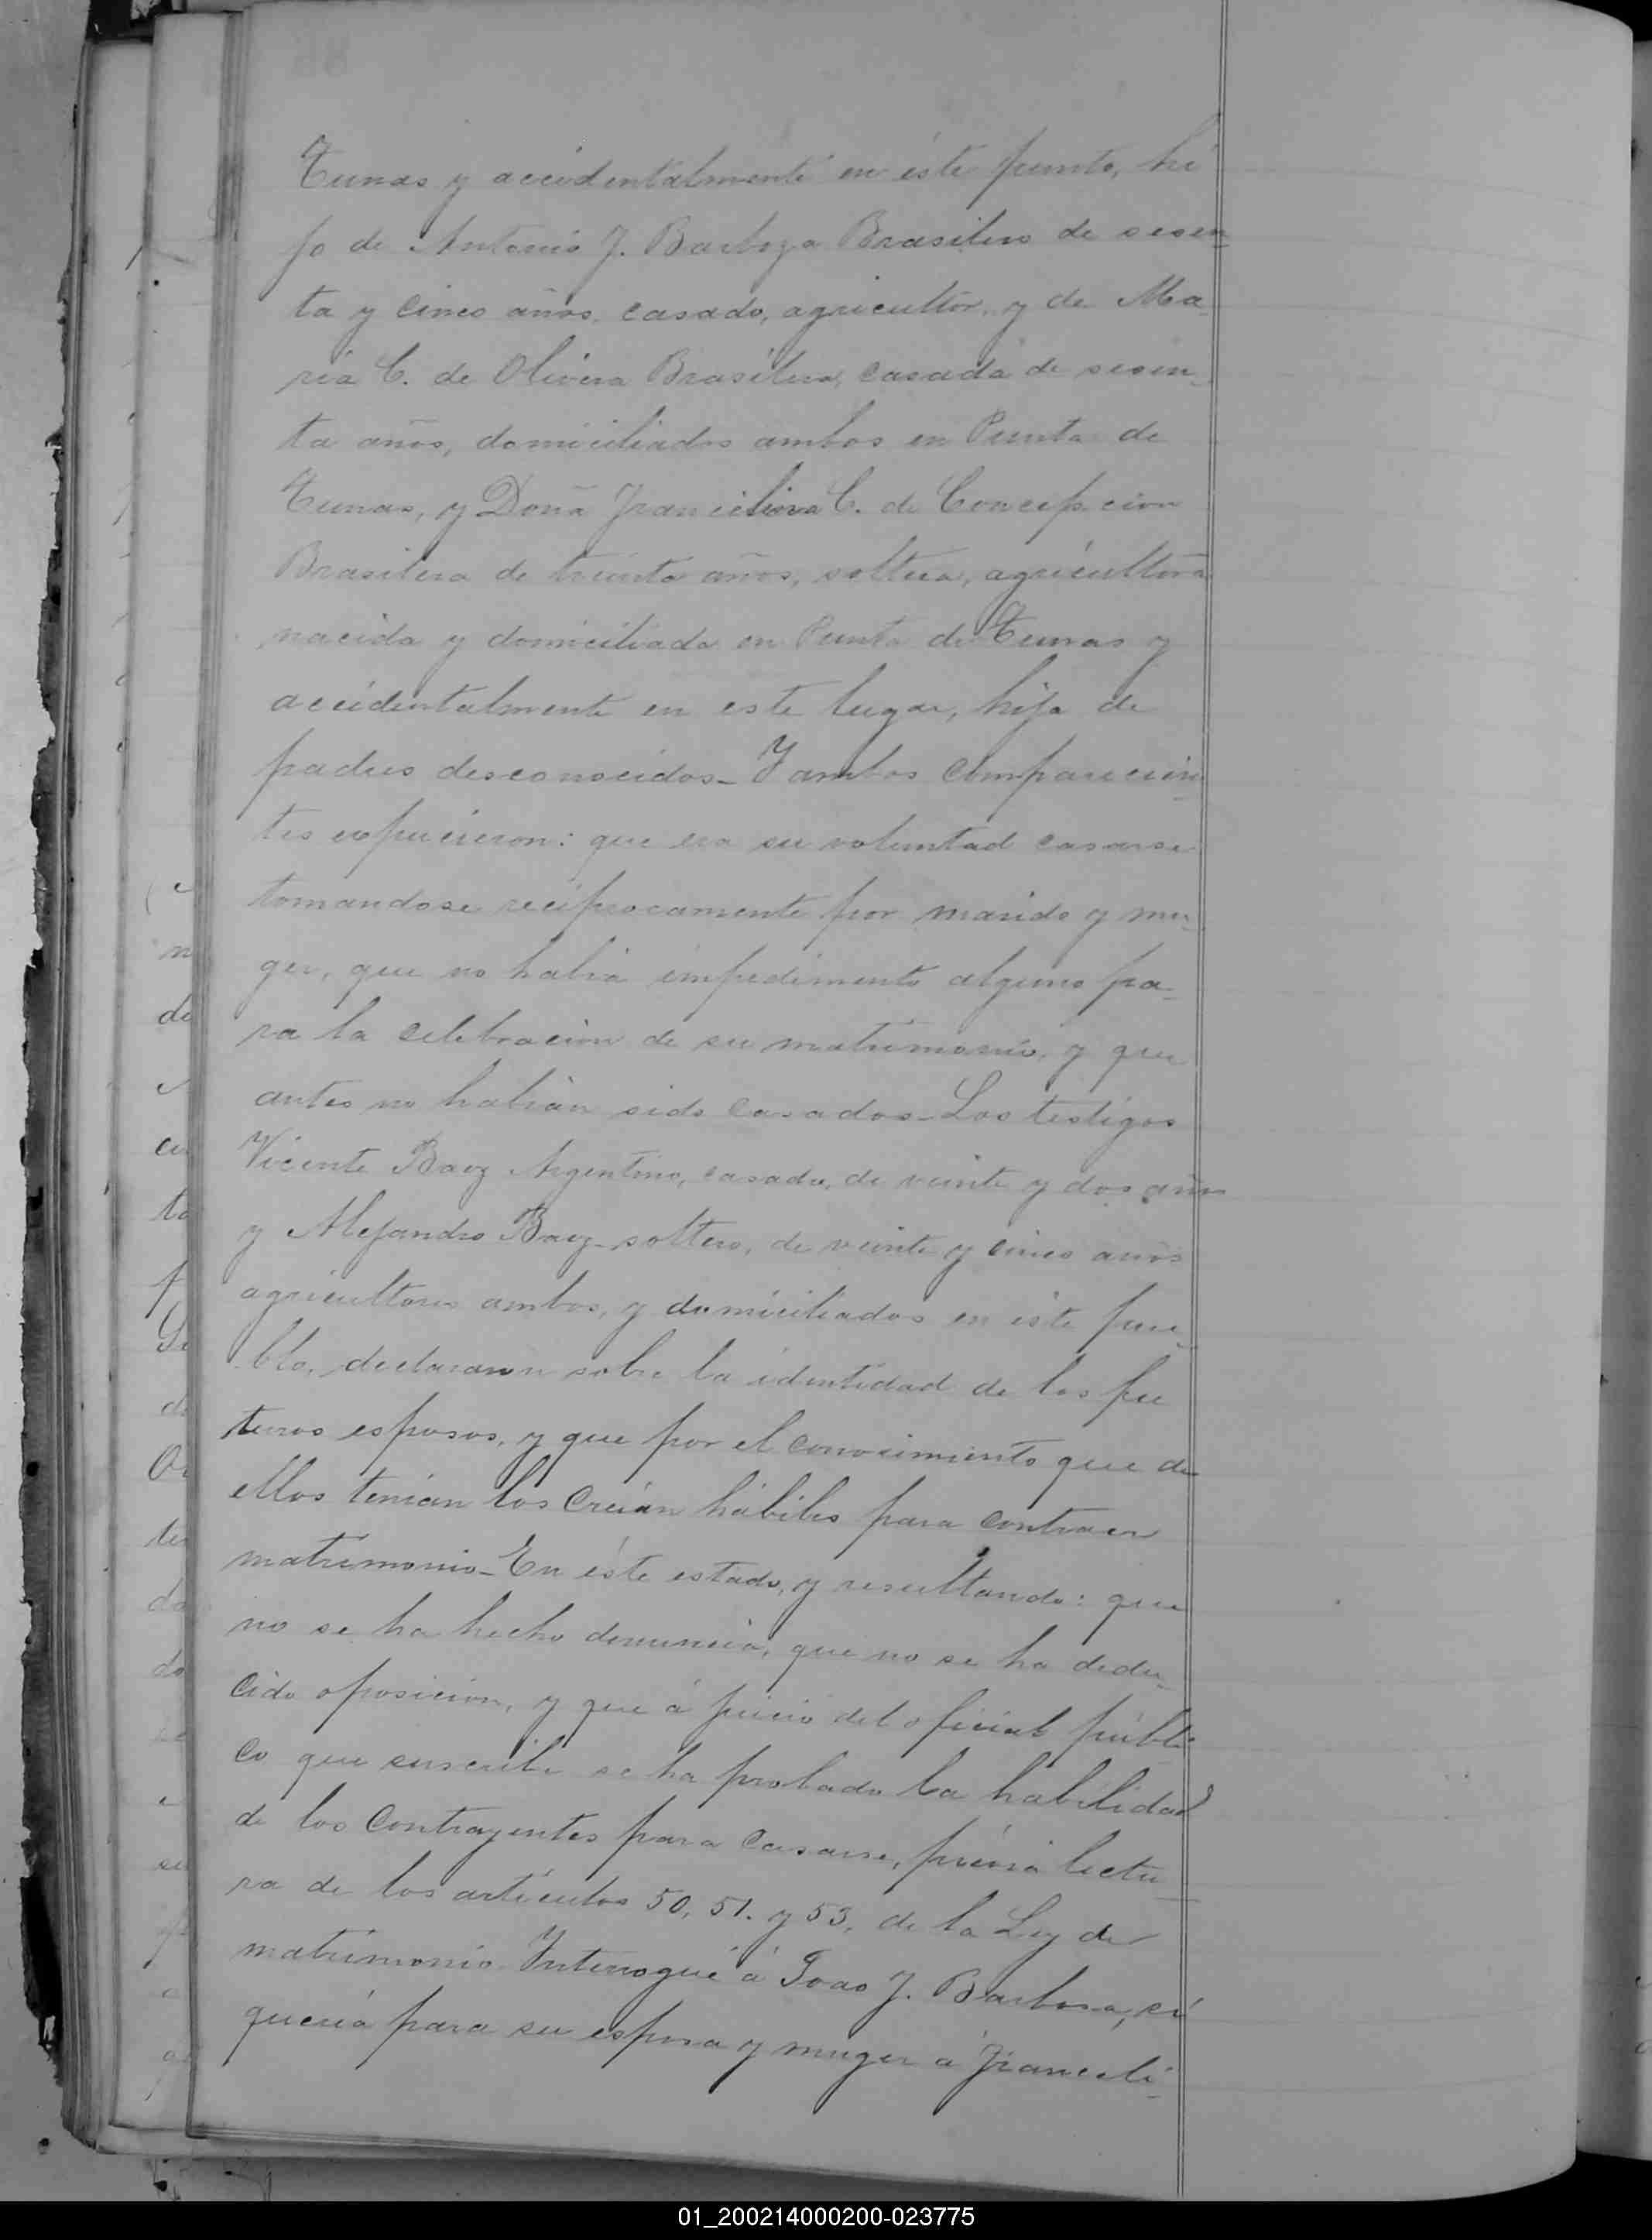 Tunas y accidentalmente en éste punto, hi
jo de Antonio J. Barboza Brasilero de sesen-
ta y cinco años, casado, agricultor, y de Ma-
ria C. de Olivera Brasilera, casada de sesen-
ta años, domiciliados ambos en Punta de
Tunas, y Doña C. de Concepcion
Brasilera de treinta años, soltera, agricultora
nacida y domiciliada en Punta de Tunas y
accidentalmente en este lugar, hija de
padres desconocidos_ Y ambos comparecien-
tes expucieron: que era su voluntad casarse
tomandose reciprocamente por marido y mu-
ger, que no habia impedimento alguno pa-
ra la celebracion de su matrimonio, y que
antes no habian sido casados_ Los testigos
Vicente Baez Argentino, casado, de veinte y dos años
y Alejandro Baez soltero, de veinte y cinco años
agricultores ambos, y domiciliados en éste pue-
blo, declararon sobre la identidad de los fu
turos esposos, y que por el conocimiento que de
ellos tenian los creian hábiles para contraer
matrimonio_ En éste estado, y resultando: que
no se ha hecho denuncia, que no se ha dedu-
cido oposicion, y que á juicio del oficial públi-
co que suscribe se ha probado la habilidad
de los contrayentes para casarse, prévia lectu-
ra de los artículos 50, 51. y 53, de la Ley de
matrimonio Interrogué á Joao J. Barbosa, si
queria para su esposa y muger á Franceli-
01_200214000200-023775